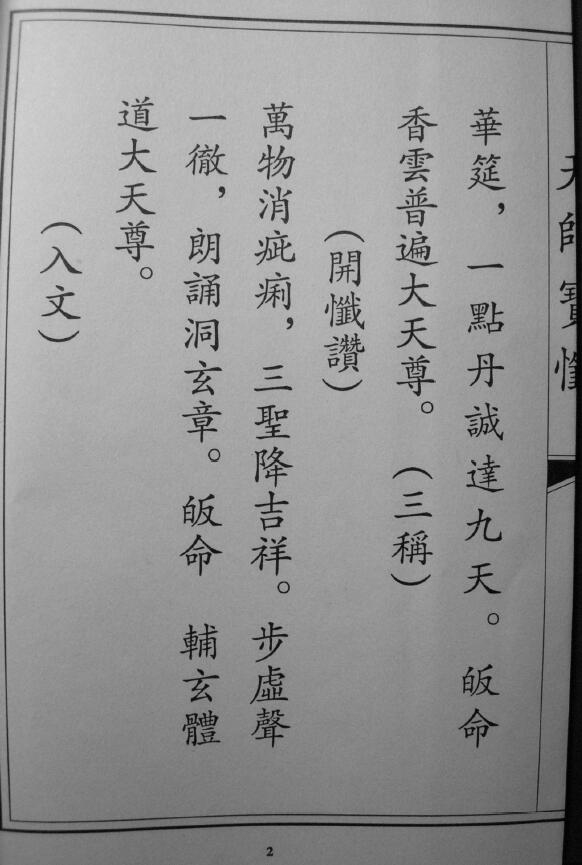 天師寶懺
華筵，一點丹誠達九天。皈命
香雲普遍大天尊。（三稱）
（開懺讚）
萬物消疵痾，三聖降吉祥。步虛聲
一徹，朗誦洞玄章。皈命　輔玄體
道大天尊。
（入文）
2